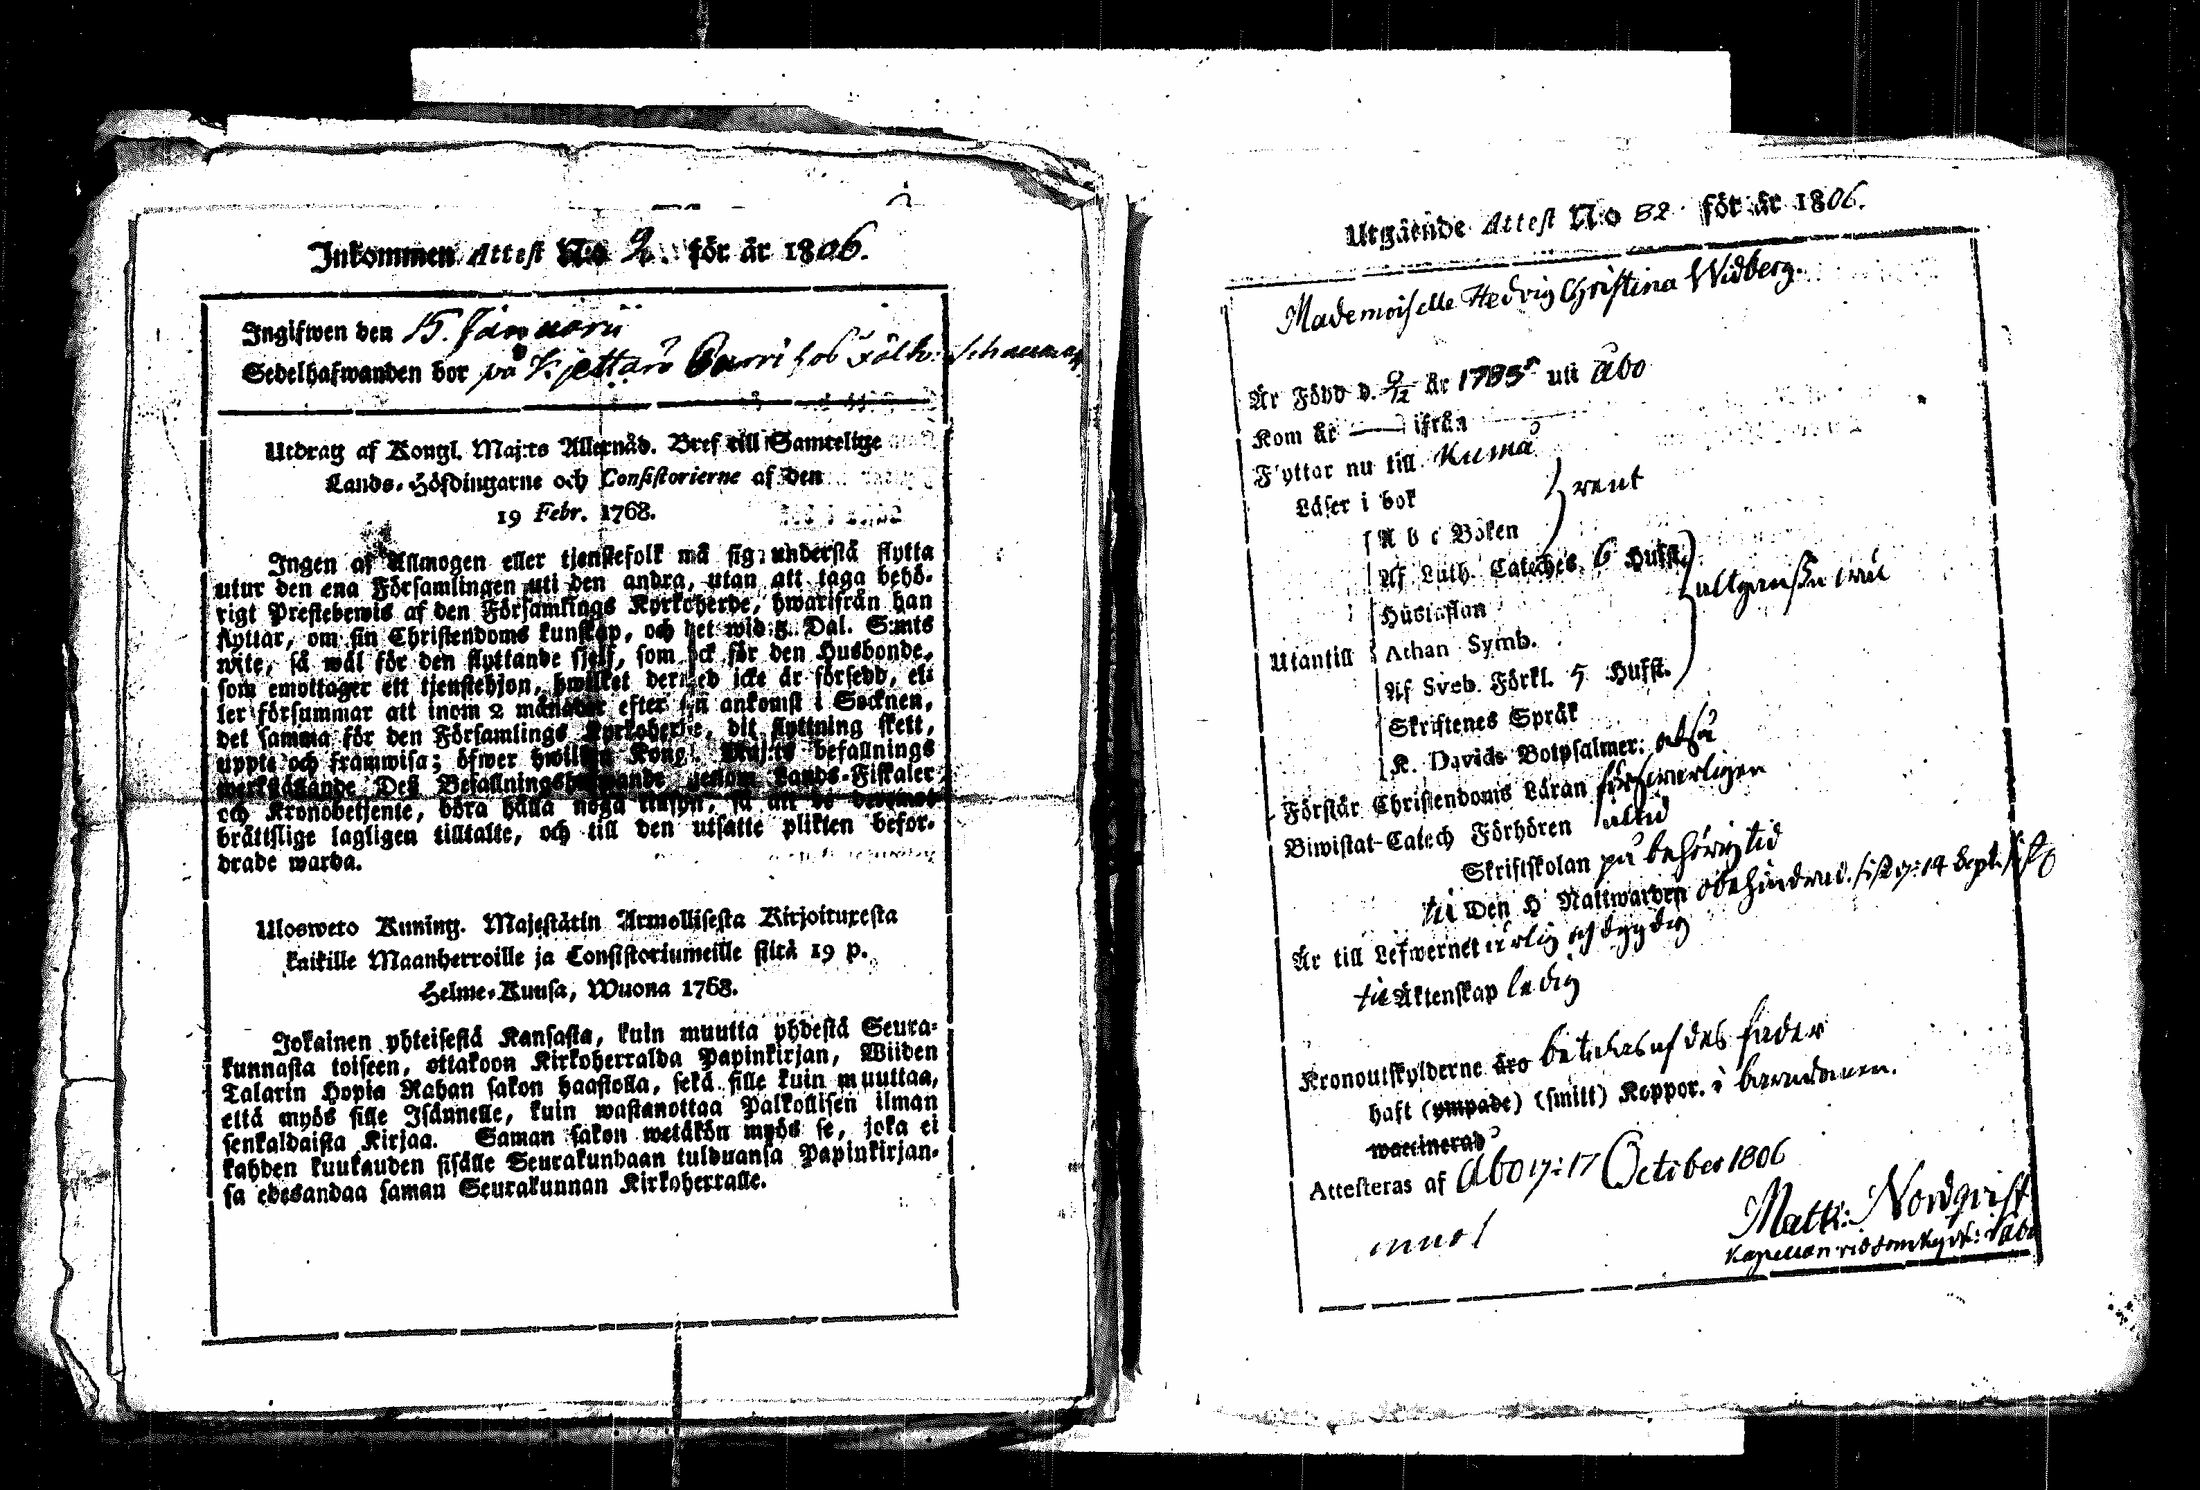 Inkommen Attest N:o 2. för år 1806.
Ingifwen den 15. Januarii
Sedelhafwanden bor på hos
Utdrag af Kongl. Maj:ts Allernåd. Bref till Samtelige
Lands-Höfdingarne och Consistorierne af den
19 Febr. 1768.
Ingen af Allmogen eller tjenstefolk må sig understå flytta
utur den ena Församlingen uti den andra, utan att taga behö-
rigt Prestebewis af den Församlings Kyrkoherde, hwarifrån han
flyttar, om sin Christendoms kunskap, och det wid 5. Dal. S:mts
wite, så wäl för den flyttande sjelf, som ock för den Husbonde,
som emottager ett tjenstehjon, hwilket dermed icke är försedd, el:
ler försummar att inom 2 månader efter sin ankomst i Socknen,
det samma för den Församlings Kyrkoherde, dit flyttning skett,
uppte och framwisa; öfwer hwilken Kongl. Maj:ts befallnings
werkställande Deß Befallningshafwande genom Lands-Fiskaler
och Kronobetjente, böra hålla noga tillsyn, så att de deremot
bråttslige lagligen tilltalte, och till den utsatte plikten befor-
drade warda.
Ulosweto Kuning. Majestätin Armollisesta Kirjoituxesta
kaikille Maanherroille ja Consistoriumeille siltä 19 p.
Helme-Kuusa, Wuona 1768.
Jokainen yhteisestä Kansasta, kuin muutta yhdestä Seura-
kunnasta toiseen, ottakoon Kirkoherralda Papinkirjan, Wiiden
Talarin Hopia Rahan sakon haastolla, sekä sille kuin muuttaa,
että myös sille Isännelle, kuin wastanottaa Palkollisen ilman
senkaldaista Kirjaa. Saman sakon wetäkön myös se, joka ei
kahden kuukauden sisälle Seurakundaan tulduansa Papinkirjan-
sa edesandaa saman Seurakunnan Kirkoherralle.
Utgående Attest N:o 82 för år 1806.
Mademoiselle Hedvig Christina Widberg.
Är Född d. 9/12 år 1785 uti Åbo
Kom år — ifrån
Flyttar nu till Kumå
Läser i bok } rent
A b c Boken
Af Luth. Catéches. 6 Hufst.
Hustaflan
Utantill Athan Symb.
Af Sveb. Förkl. 5 Hufst.
Skriftenes Språk
K. Davids Botpsalmer: också
Förstår Christendoms Läran förswarligen
Biwistat Catech Förhören altid
Skriftskolan på behörig tid
till Den H Nattwarden obehindrad. sist d: 14 Sept.
Är till Lefwernet ärlig och dygdig
till Äktenskap ledig
Kronoutskylderne äro betalas af des fader
haft (ympade) (smitt) Koppor. i barndomen.
waccinerad
Attesteras af Åbo d: 17 October 1806
Matth: Nordqvist